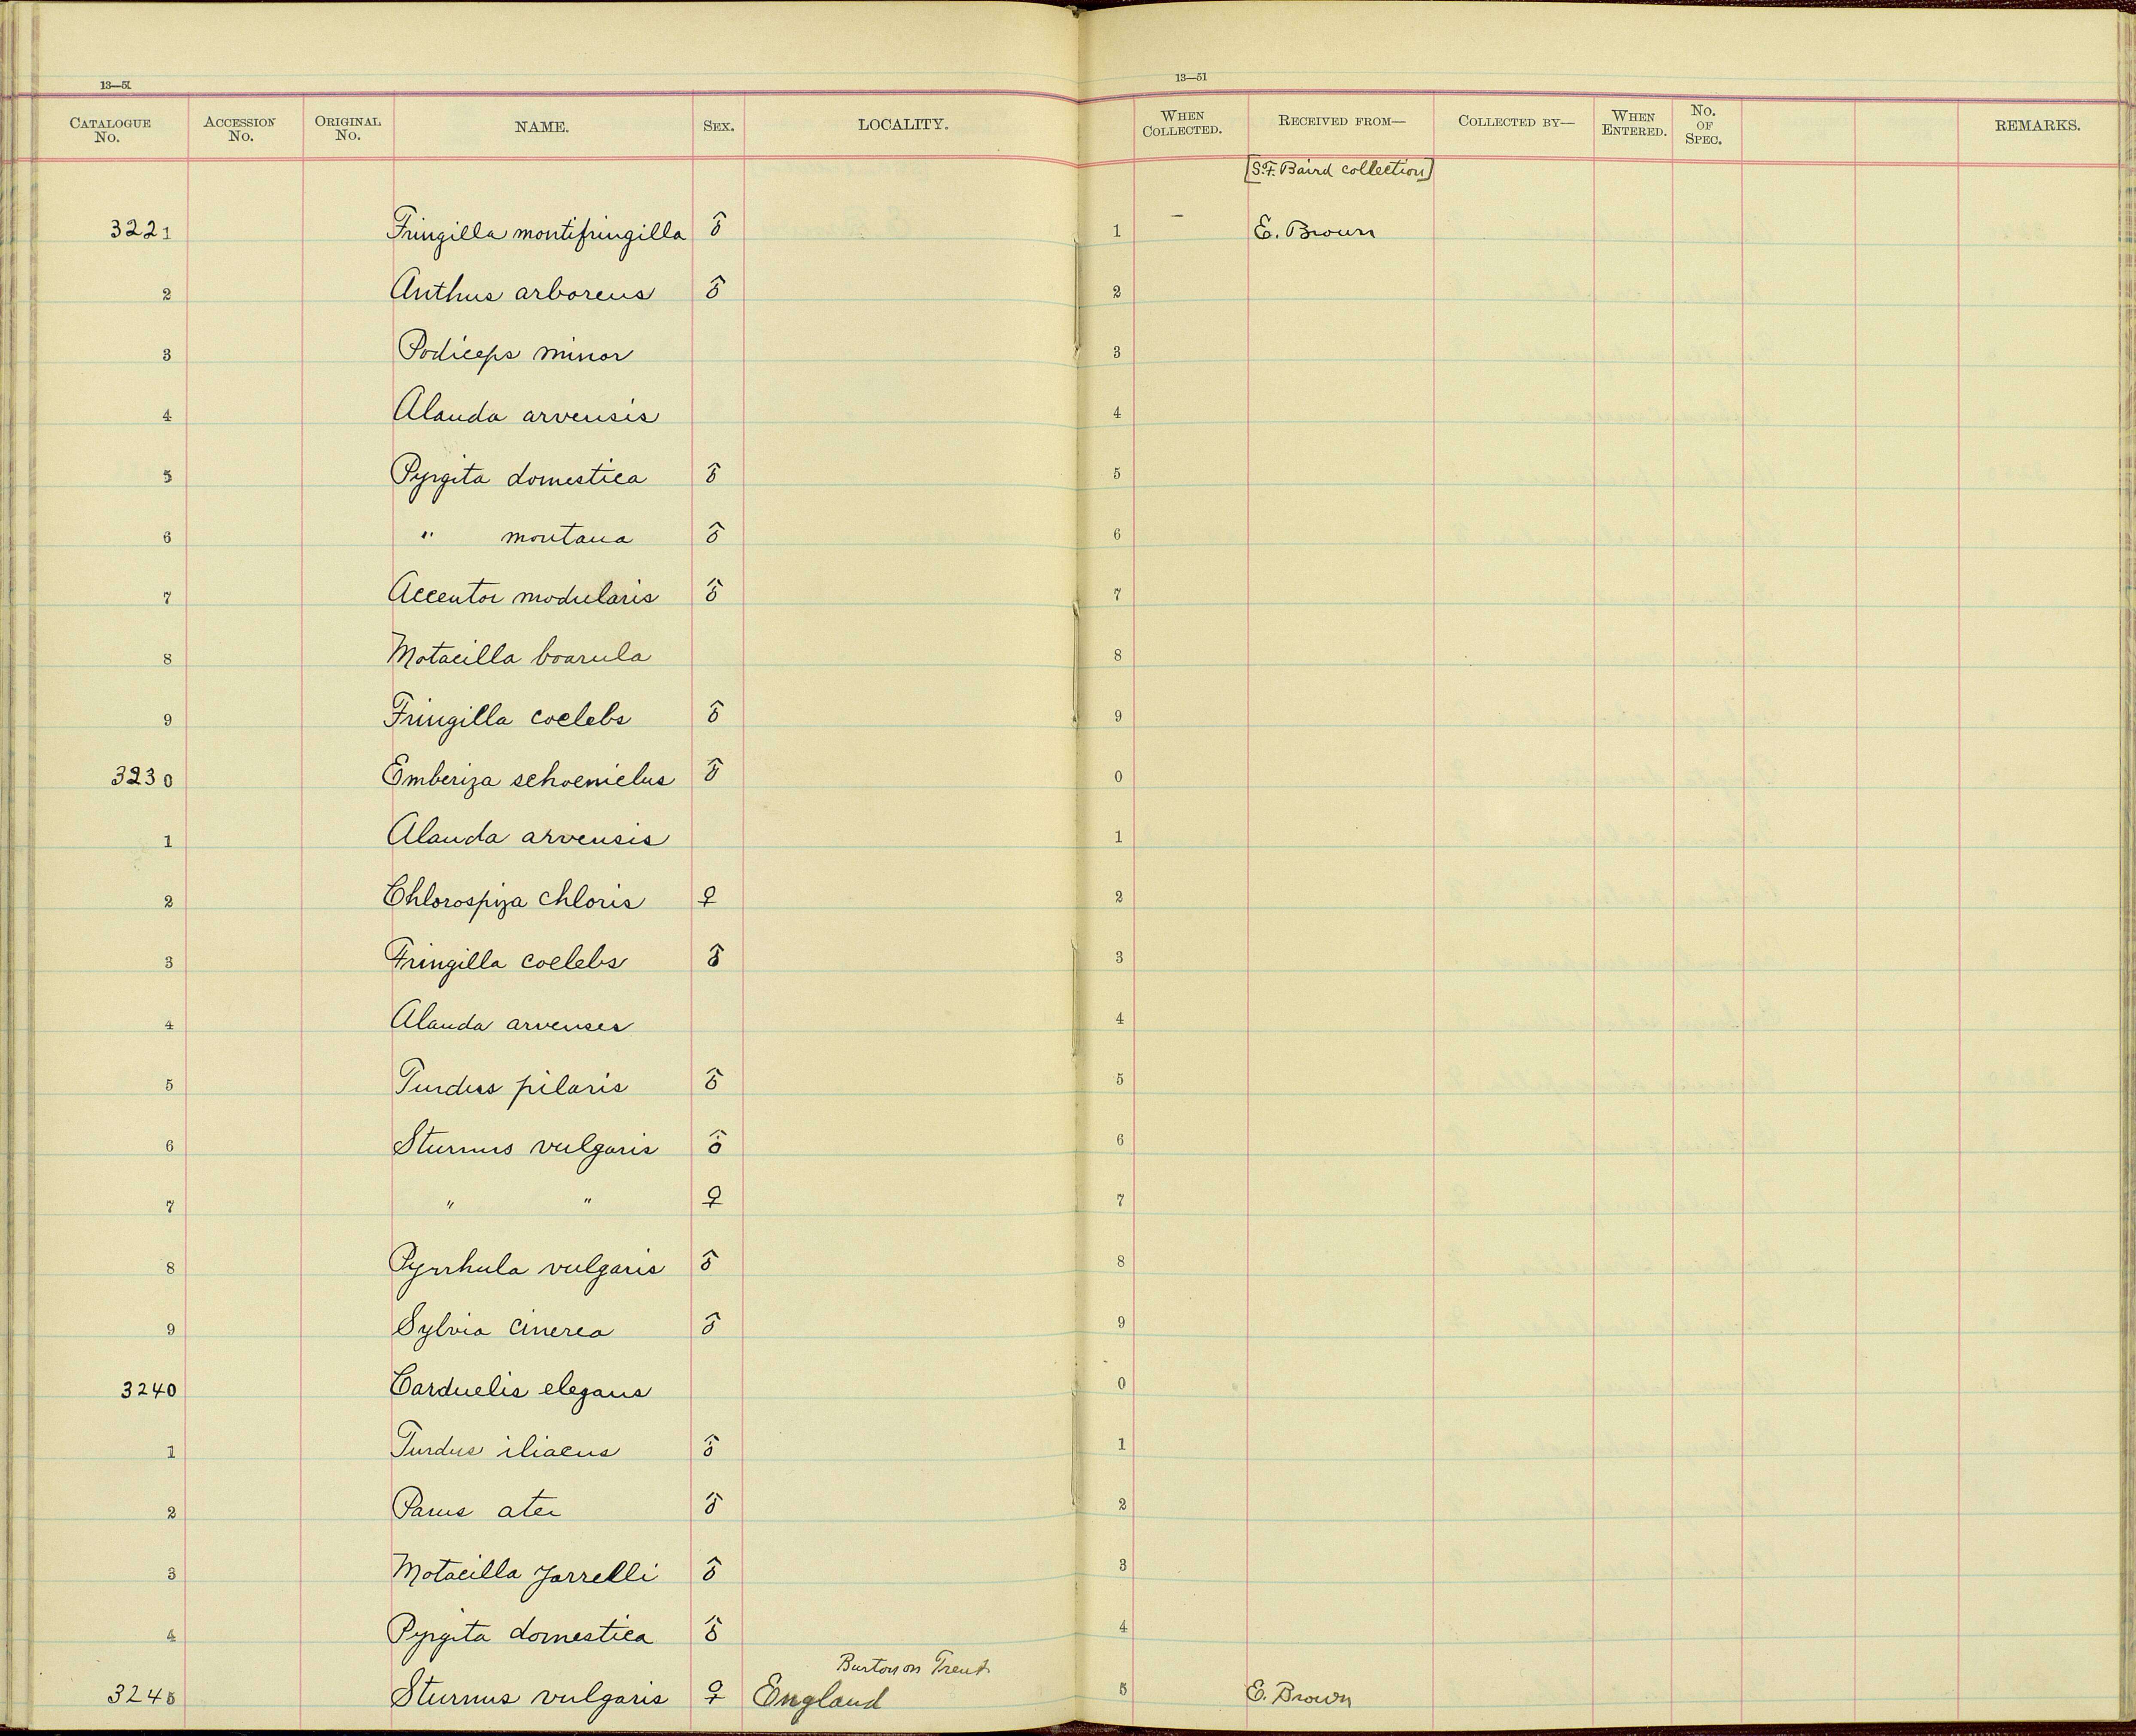 13—51 13—51
CATALOGUE No. ACCESSION No. ORIGINAL No. NAME. SEX. LOCALITY. WHEN COLLECTED. RECEIVED FROM— COLLECTED BY— WHEN ENTERED. No. OF SPEC. REMARKS.
[S.F. Baird collection]
3221 Fringilla montifringilla ♂ 1 — E. Brown
2 Anthus arboreus ♂ 2
3 Podiceps minor 3
4 Alauda arvensis 4
5 Pyrgita domestica ♂ 5
6 " montana ♂ 6
7 Accentor modularis ♂ 7
8 Motacilla boarula 8
9 Fringilla coelebs ♂ 9
3230 Emberiza schoenielus ♂ 0
1 Alauda arvensis 1
2 Chlorospiza chloris ♀ 2
3 Fringilla coelebs ♂ 3
4 Alauda arvenses 4
5 Turdus pilaris ♂ 5
6 Sturnus vulgaris ♂ 6
7 " " ♀ 7
8 Pyrrhula vulgaris ♂ 8
9 Sylvia cinerea ♂ 9
3240 Carduelis elegans 0
1 Turdus iliacus ♂ 1
2 Parus ater ♂ 2
3 Motacilla Yarrelli ♂ 3
4 Pyrgita domestica ♂ 4
Burton on Trent
3245 Sturnus vulgaris ♀ England 5 E. Brown